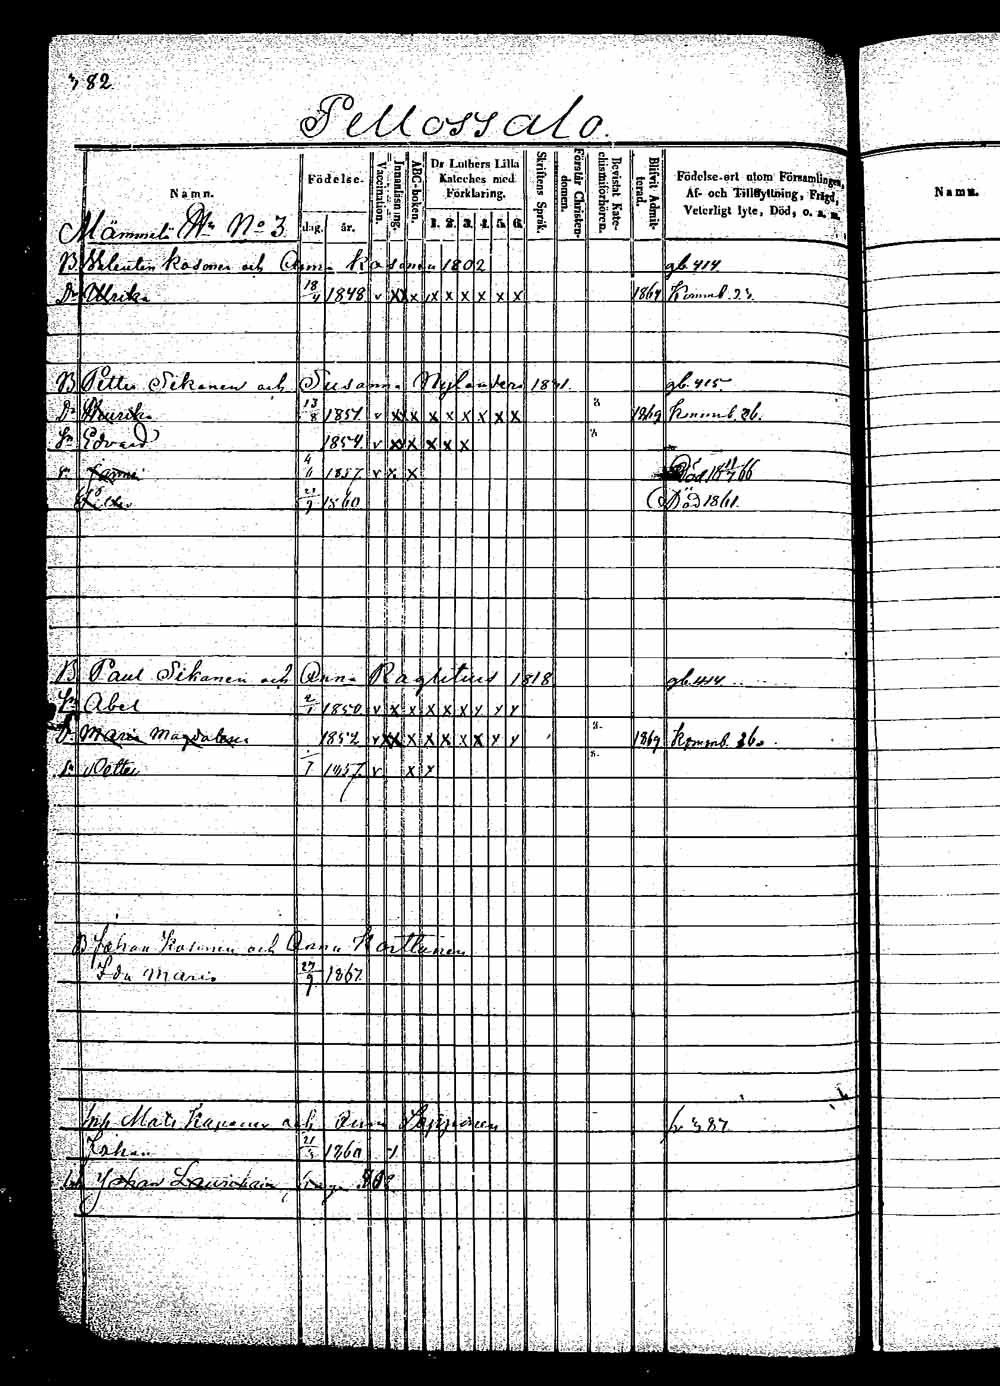 382.
Pellossalo.
Namn.
Födelse-
dag. år.
Vaccination.
Innanläsning.
ABC-boken.
Dr Luthers Lilla Kateches med Förklaring.
1. 2. 3. 4. 5. 6.
Skriftens Språk.
Förstår Christendomen.
Bevistat Katechismiförhören.
Blifvit Admitterad.
Födelse-ort utom Församlingen, Af- och Tillflyttning, Frägd, Veterligt lyte, Död, o. s. m.
Namn.
No 3
B Valentin Kosonen och Anna Kosonen 1802 gb. 414
Dr Ulrika 18/4 1848 v x x x x x x x x x 1864 Kommb. 23.
B Petter Sikanen och Susanna Nylander 1841. gb. 415
Dr 13/8 1851 v x x x x x x x x x 1869 kommb. 26.
Sn Edvard 1854 v x x x x x
1857 v x x Död 18 66
21/9 1860 Död 1861.
B Paul Sikanen och Anna 1818 gb. 414
Sn Abel 2/1 1850 v x x x x x x x x
Dr Maria Magdalena 1852 v x x x x x x x x 1869 Kommb. 26.
Sn Petter 1857 v x x
B Johan Kosonen och Anna Korttunen
Ida Maria 27/9 1867
Mats Kaponen och Anna
Johan 21/5 1860
Johan